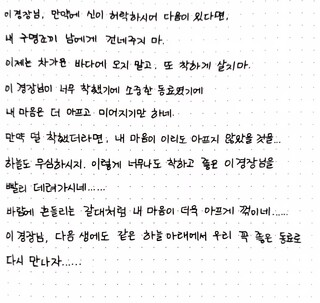 이경장님, 만약에 신이 허락하시어 다음이 있다면,
내 구명조끼 남에게 건네주지 마.
이제는 차가운 바다에 오지 말고, 또 착하게 살지마.
이 경장님이 너무 착했기에 소중한 동료였기에
내 마음은 더 아프고 미어지기만 하네.
만약 덜 착했더라면, 내 마음이 이리도 아프지 않았을 것을...
하늘도 무심하시지. 이렇게 너무나도 착하고 좋은 이경장님을
빨리 데려가시네......
바람에 흔들리는 갈대처럼 내 마음이 더욱 아프게 꺾이네......
이 경장님, 다음 생에도 같은 하늘 아래에서 우리 꼭 좋은 동료로
다시 만나자......